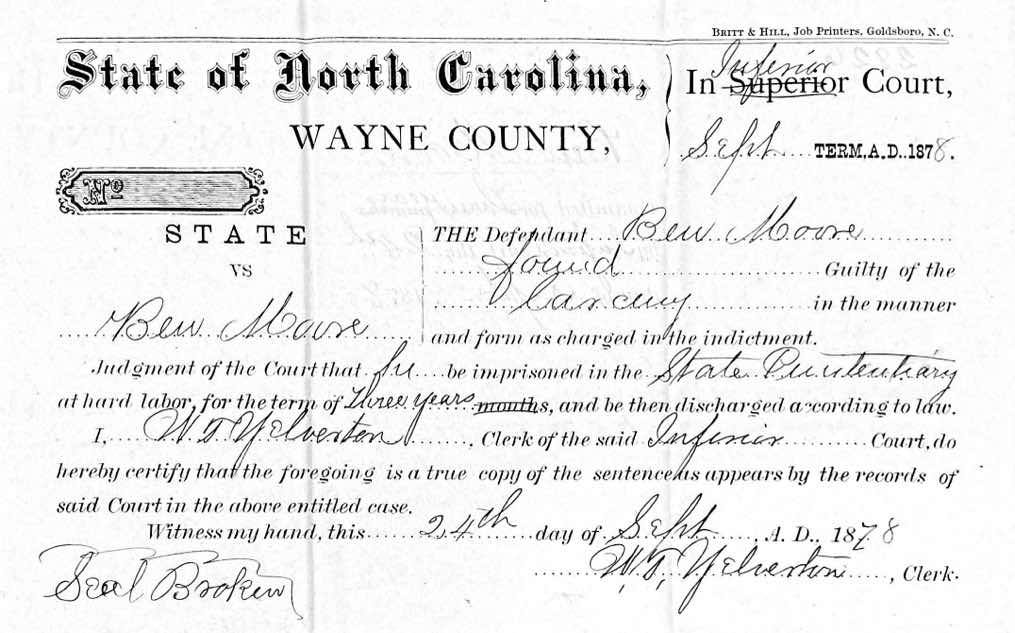 BRITT & HILL, Job Printers, Goldsboro, N. C.
State of North Carolina,
In Inferior Superior Court,
WAYNE COUNTY,
Sept TERM, A. D. 1878.
No
STATE
VS
Ben Moore
THE Defendant Ben Moore
found Guilty of the
Larceny in the manner
and form as charged in the indictment.
Judgment of the Court that he be imprisoned in the State Penitentiary
at hard labor, for the term of Three years months, and be then discharged according to law.
I, W T Yelverton, Clerk of the said Inferior Court, do
hereby certify that the foregoing is a true copy of the sentence as appears by the records of
said Court in the above entitled case.
Witness my hand, this 24th day of Sept, A. D., 1878
W. T. Yelverton, Clerk.
Seal Broken